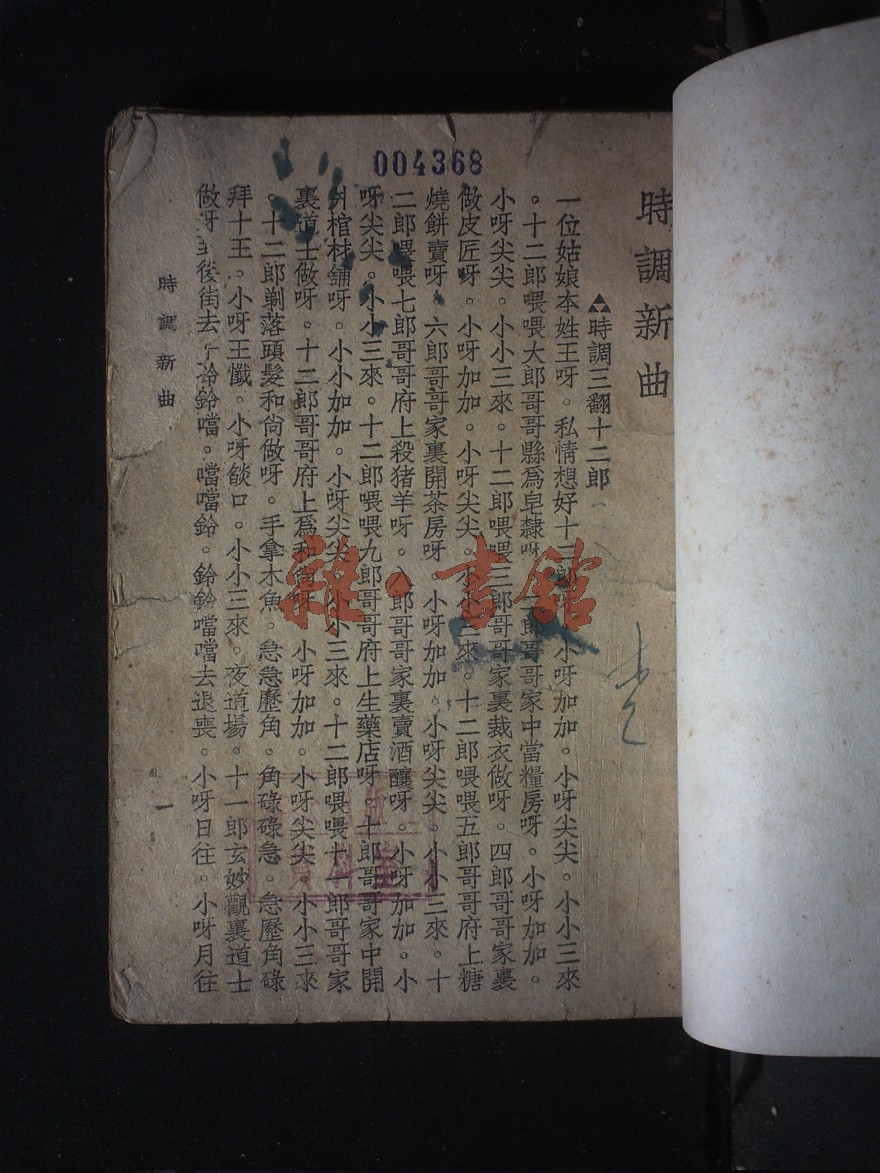 004368
時調新曲
時調三翻十二郎
一位姑娘本姓王呀。私情想好十二郎 小呀加加。小呀尖尖。小小三來
。十二郎喂喂大郎哥哥縣爲皂隸呀 二郎哥哥家中當糧房呀。小呀加加。
小呀尖尖。小小三來。十二郎喂喂三郎哥哥家裏裁衣做呀。四郎哥哥家裏
做皮匠呀。小呀加加。小呀尖尖。小小三來。十二郎喂喂五郎哥哥府上糖
燒餅賣呀。六郎哥哥家裏開茶房呀。小呀加加。小呀尖尖。小小三來。十
二郎喂喂七郎哥哥府上殺猪羊呀。八郎哥哥家裏賣酒釀呀。小呀加加。小
呀尖尖。小小三來。十二郎喂喂九郎哥哥府上生藥店呀。十郎哥哥家中開
爿棺材鋪呀。小小加加。小呀尖尖。小小三來。十二郎喂喂十一郎哥哥家
裏道士做呀。十二郎哥哥府上爲和尙呀 小呀加加。小呀尖尖。小小三來
。十二郎剃落頭髮和尙做呀。手拿木魚。急急歷角。角碌碌急。急歷角碌
拜十王。小呀王懺。小呀燄口。小小三來。夜道場。十一郎玄妙觀裏道士
做呀 後街去 鈴鈴噹。噹噹鈴。鈴鈴噹噹去退喪。小呀日往。小呀月往
時調新曲
一
雜·書館